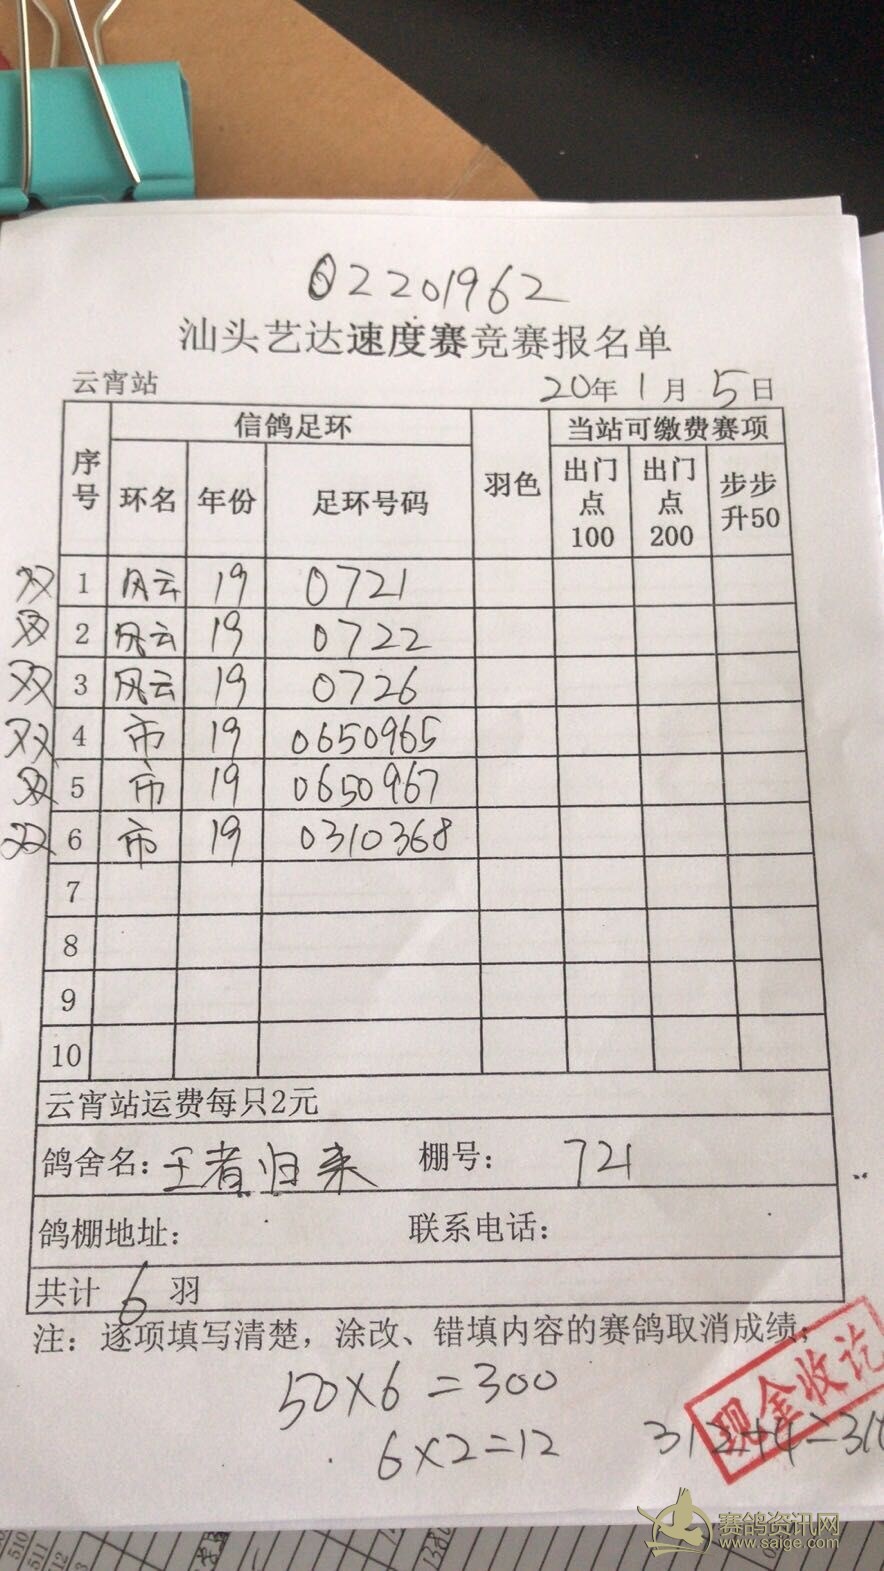 02201962
汕头艺达速度赛竞赛报名单
云宵站 20年1月5日
序号 信鸽足环 羽色 当站可缴费赛项
环名 年份 足环号码 出门点100 出门点200 步步升50
双 1 风云 19 0721
双 2 风云 19 0722
双 3 风云 19 0726
双 4 市 19 0650965
双 5 市 19 0650967
双 6 市 19 0310368
7
8
9
10
云宵站运费每只2元
鸽舍名：王者归来 棚号： 721
鸽棚地址： 联系电话：
共计 6 羽
注：逐项填写清楚，涂改、错填内容的赛鸽取消成绩；
现金收讫
50×6=300
6×2=12 312+4=31
赛鸽资讯网
www.saige.com
510
511